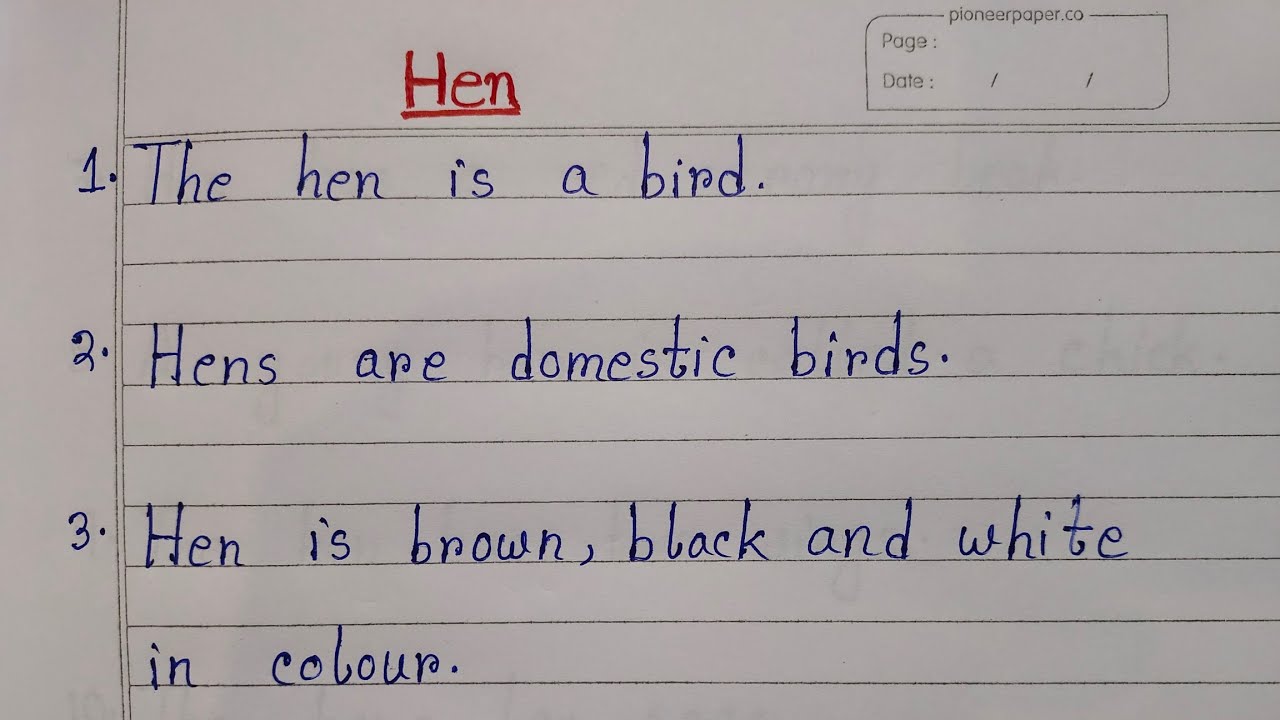 pioneerpaper.co
Page :
Date : / /
Hen
1. The hen is a bird.
2. Hens are domestic birds.
3. Hen is brown, black and white
in colour.